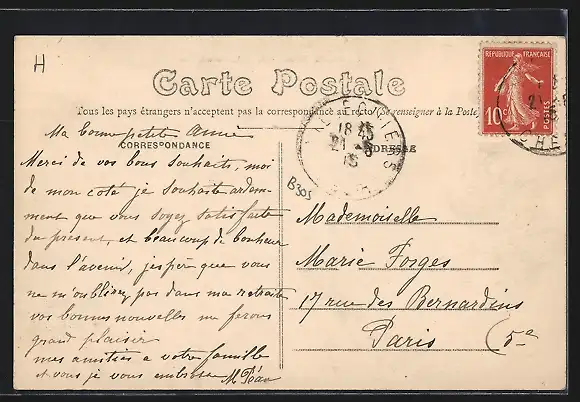 H
Carte Postale
Tous les pays étrangers n'acceptent pas la correspondance au recto (Se renseigner à la Poste)
CORRESPONDANCE
ADRESSE
RÉPUBLIQUE FRANÇAISE
10c
POSTES
18 45
21 -6
B305
Ma bonne petite amie
Merci de vos bons souhaits, moi
de mon coté je souhaite ardem-
ment que vous soyez satisfaite
du présent, et beaucoup de bonheur
dans l'avenir, j'espère que vous
ne m'oublierez pas dans ma retraite
vos bonnes nouvelles me ferons
grand plaisir
mes amitiés a votre famille
et vous je vous embrasse M Péan
Mademoiselle
Marie Forges
17 rue des Bernardins
Paris (5e